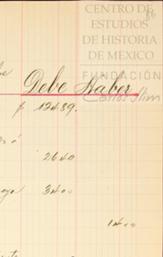 CENTRO DE
ESTUDIOS
DE HISTORIA
DE MÉXICO
FUNDACIÓN
Carlos Slim
86
Debe Haber
$ 12489.
2640
3400
1400